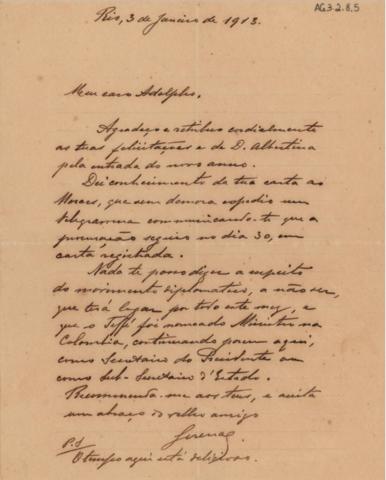 AG3.2.8.5
Rio, 3 de Janeiro de 1913.
Meu caro Adolpho,
Agradeço e retribuo cordialmente
as tuas felicitações e de D. Albertina
pela entrada do novo anno.
Dei conhecimento da tua carta ao
Moraes, que sem demora expedio um
telegramma communicando-te que a
procuração seguio no dia 30, em
carta registrada.
Nada te posso dizer a respeito
do movimento diplomatico, a não ser,
que terá lugar por todo este mez, e
que o Teffé foi nomeado Ministro na
Colombia, continuando porem aqui,
como Secretario do Presidente ou
como Sub-Secretario d'Estado.
Recommenda-me aos teus, e aceita
um abraço do velho amigo
P.S
O tempo aqui está delicioso.